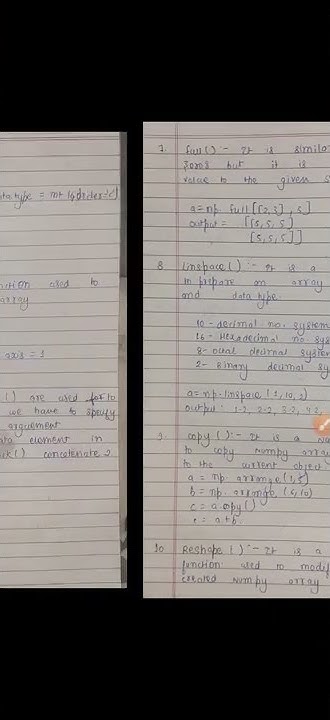 datatype = int 16, order='C')
nction used to
array
axis = 1
() are used for to
we have to specify
arguement
ata element in
ck() concatenate 2
7. full() :- It is simila
zeros but it is
value to the given s
a = np. full [[2,3], 5]
output = [[5, 5, 5]
[5, 5, 5]]
8. linspace() :- It is a
in prepare an array
and data type.
10 - decimal no. system
16 - Hexadecimal no. sys
8 - octal decimal syst
2 - Binary decimal sy
a = np.linspace (1, 10, )
output : 1.2, 2.2, 3.2, 4.2,
9. copy() :- It is a Num
to copy numpy arra
to the current object.
a = np arrange (1,5)
b = np. arrange, (6,10)
c = a.copy()
e = a+b.
10. Reshape () :- It is a
function used to modif
created Numpy array